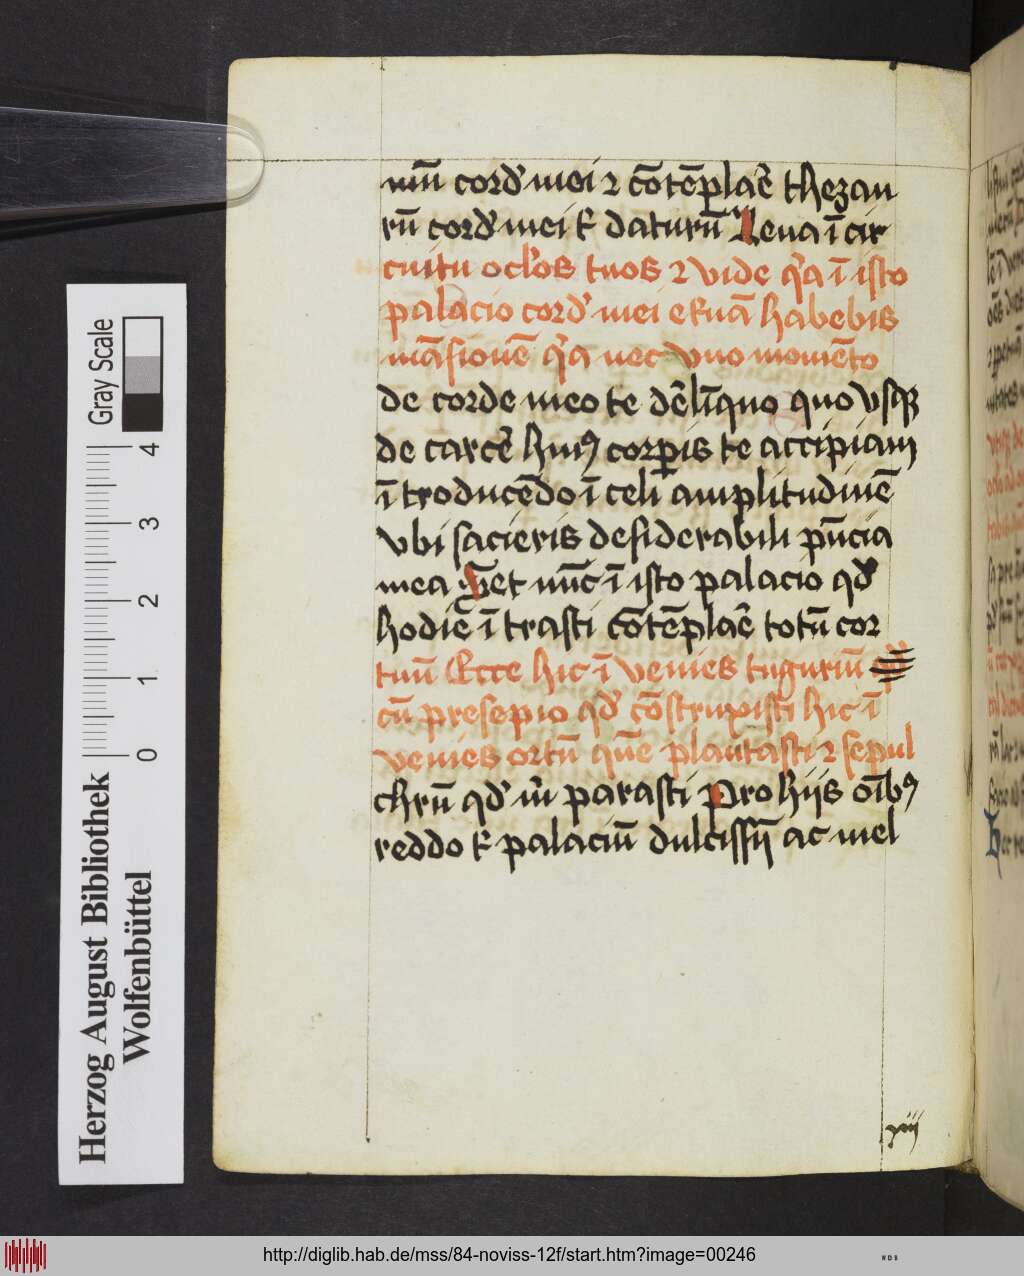 mū cord' mei ⁊ cōtēplar̄e thezau
rū cord' mei t̄ daturū Leua ī cir
cuitu oc'los tuos ⁊ vide q'a ī isto
palacio cord' mei et̄nā habebis
māsionē q'a nec vno momēto
de corde meo te dēlīquo quo vsqꝫ
de carcē huiꝰ corꝑis te accipiam
ītroducēdo ī celi amplitudinē
vbi sacieris desiderabili p̄ncia
mea Set nūc ī isto palacio qd'
hodiē ītrasti cōtēplar̄e totū cor
tuū Ecce hic īvenies tuguriū
cū presepio qd' cōstruxisti hic ī
venies ortū quē plantasti ⁊ sepul
chrū qd' m̄ parasti Pro hijs oībꝰ
reddo t̄ palaciū dulcissīm ac mel
xiij
Herzog August Bibliothek
Wolfenbüttel
Gray Scale
0 1 2 3 4
http://diglib.hab.de/mss/84-noviss-12f/start.htm?image=00246